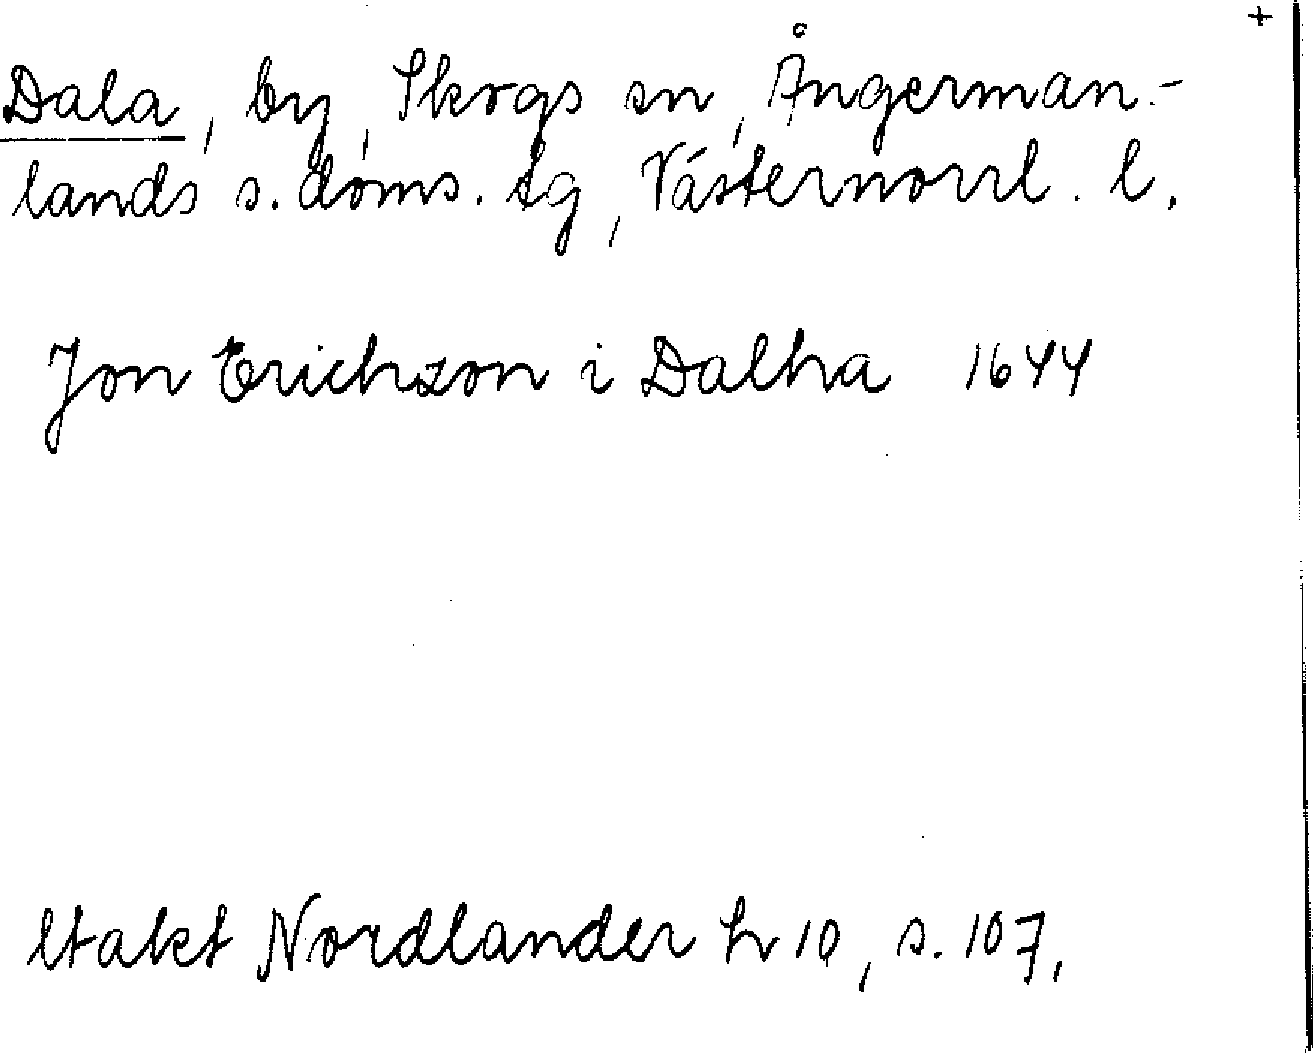 +
Dala, by, Skogs sn, Ångerman-
lands s. doms. lg, Västernorrl. l.
Jon Erichzon i Dalha 1644
Nordlander h 10, s. 107.